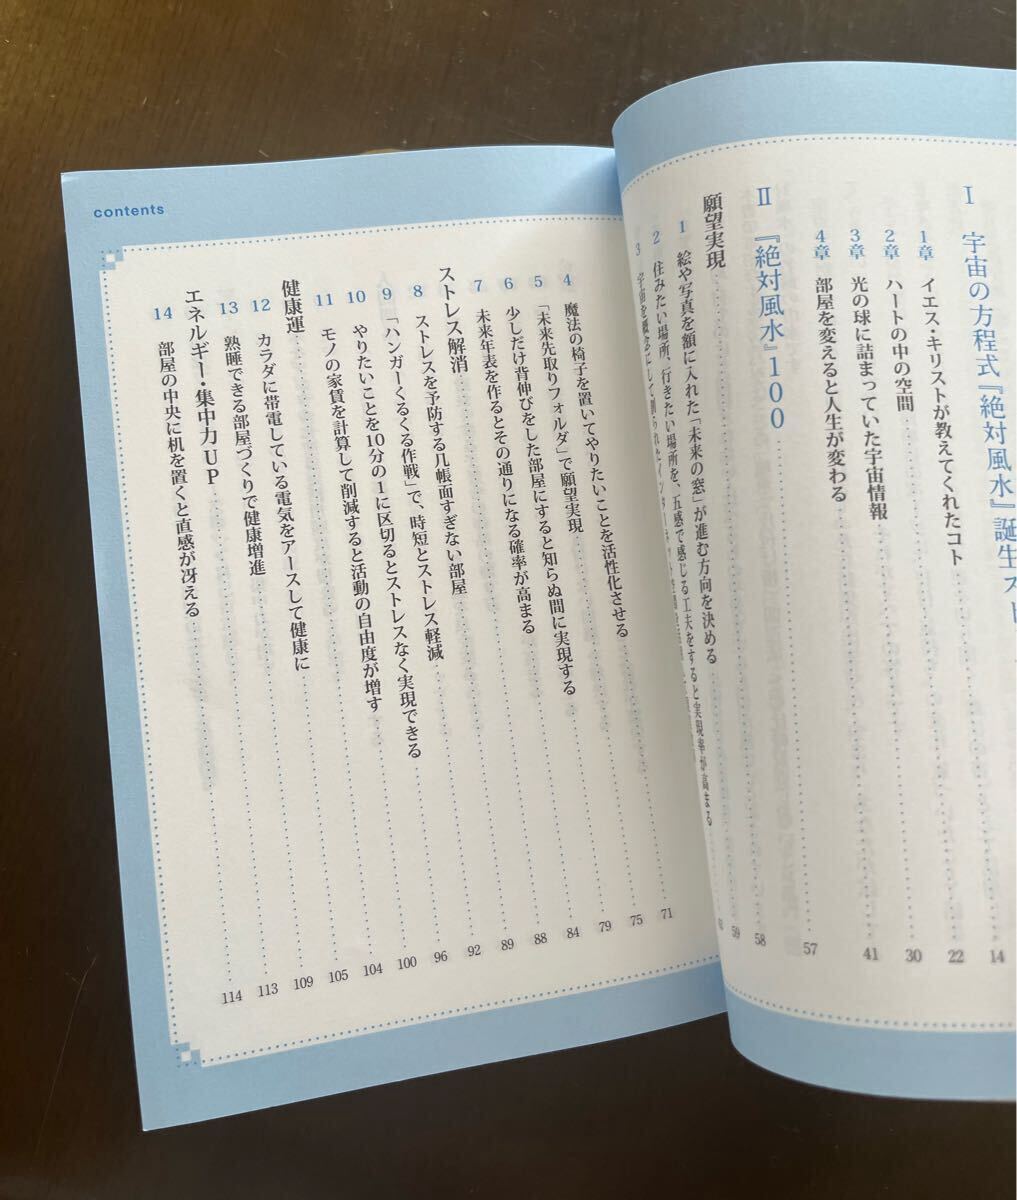 I 宇宙の方程式『絶対風水』誕生ス
1章 イエス・キリストが教えてくれたコト 14
2章 ハートの中の空間 22
3章 光の球に詰まっていた宇宙情報 30
4章 部屋を変えると人生が変わる 41
II 『絶対風水』100 57
願望実現 58
1 絵や写真を額に入れた「未来の窓」が進む方向を決める 59
2 住みたい場所、行きたい場所を、五感で感じる工夫をすると実現率が高まる
3 宇宙を概念にして創られたインターネット空間
contents
4 魔法の椅子を置いてやりたいことを活性化させる 71
5 「未来先取りフォルダ」で願望実現 75
6 少しだけ背伸びをした部屋にすると知らぬ間に実現する 79
7 未来年表を作るとその通りになる確率が高まる 84
ストレス解消 88
8 ストレスを予防する几帳面すぎない部屋 89
9 「ハンガーくるくる作戦」で、時短とストレス軽減 92
10 やりたいことを10分の1に区切るとストレスなく実現できる 96
11 モノの家賃を計算して削減すると活動の自由度が増す 100
健康運 104
12 カラダに帯電している電気をアースして健康に 105
13 熟睡できる部屋づくりで健康増進 109
エネルギー・集中力UP 113
14 部屋の中央に机を置くと直感が冴える 114